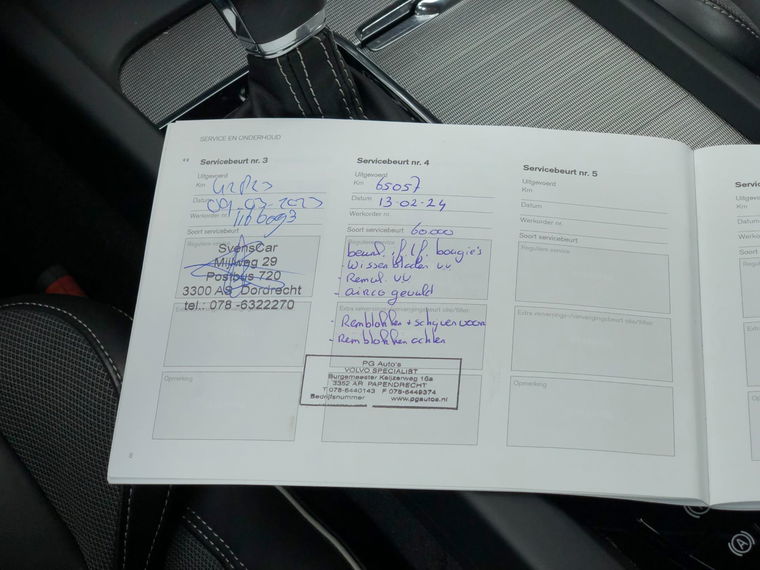 SERVICE EN ONDERHOUD
Servicebeurt nr. 3
Uitgevoerd
Km
Datum 09-03-2023
Werkorder nr.
Soort servicebeurt
Reguliere service
SvensCar
Mijlweg 29
Postbus 720
3300 AS Dordrecht
tel.: 078 -6322270
Opmerking
Servicebeurt nr. 4
Uitgevoerd
Km 65057
Datum 13-02-24
Werkorder nr.
Soort servicebeurt 60.000
Reguliere service
beurt, f. l.f. bougie's
- Wissenbladen vv
- Remvl. vv
- airco gevuld
Extra verversings-/vervangingsbeurt olie/filter
- Remblokken + schyven voor
- Remblokken achter
PG Auto's
VOLVO SPECIALIST
Burgemeester Keijzerweg 16a
3352 AR PAPENDRECHT
T 078-6440143 F 078-6449374
Bedrijfsnummer www.pgautos.nl
Servicebeurt nr. 5
Uitgevoerd
Km
Datum
Werkorder nr.
Soort servicebeurt
Reguliere service
Extra verversings-/vervangingsbeurt olie/filter
Opmerking
6
Km
Datum
A